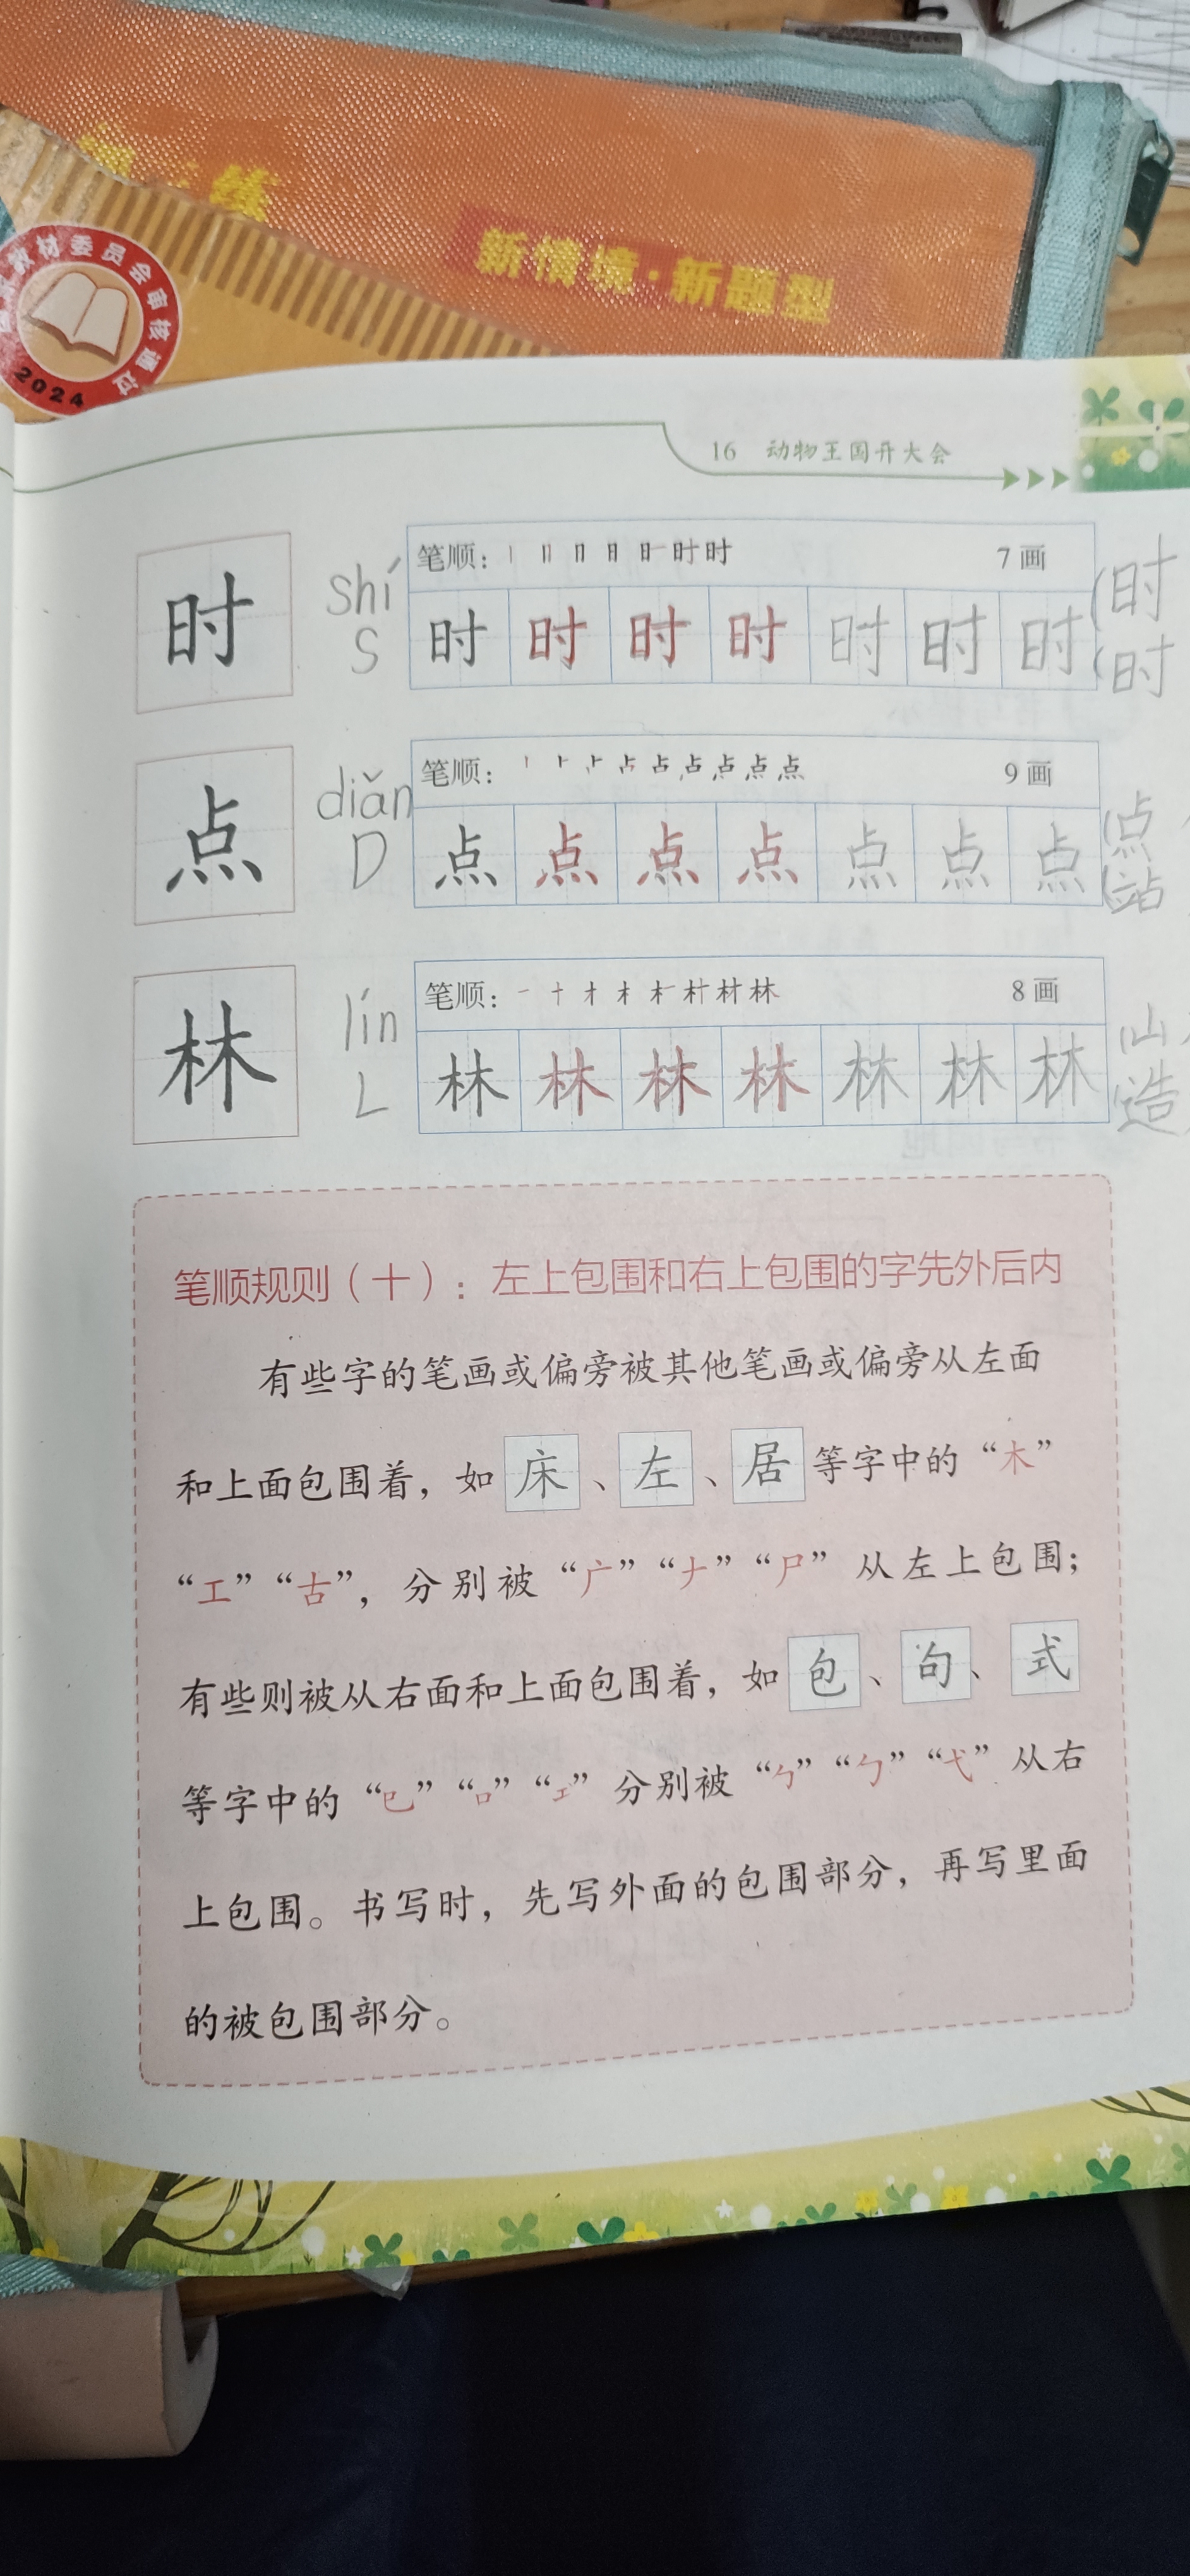 练
新情境·新题型
教材委员会审核通过
2024
16 动物王国开大会
时
shí
S
笔顺：
7画
时 时 时 时 时 时 时
(时
(时
点
diǎn
D
笔顺：
9画
点 点 点 点 点 点 点
(点
(站
林
lín
L
笔顺：
8画
林 林 林 林 林 林 林
(山
造
笔顺规则（十）：左上包围和右上包围的字先外后内
有些字的笔画或偏旁被其他笔画或偏旁从左面
和上面包围着，如床、左、居等字中的“木”
“工”“古”，分别被“广”“𠂇”“尸”从左上包围；
有些则被从右面和上面包围着，如包、句、式
等字中的“巳”“口”“工”分别被“勹”“勹”“弋”从右
上包围。书写时，先写外面的包围部分，再写里面
的被包围部分。